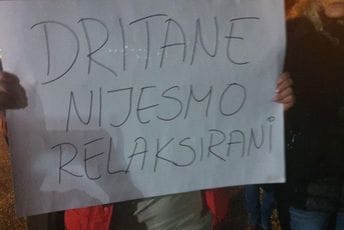 DRITANE
NIJESMO
RELAKSIRANI